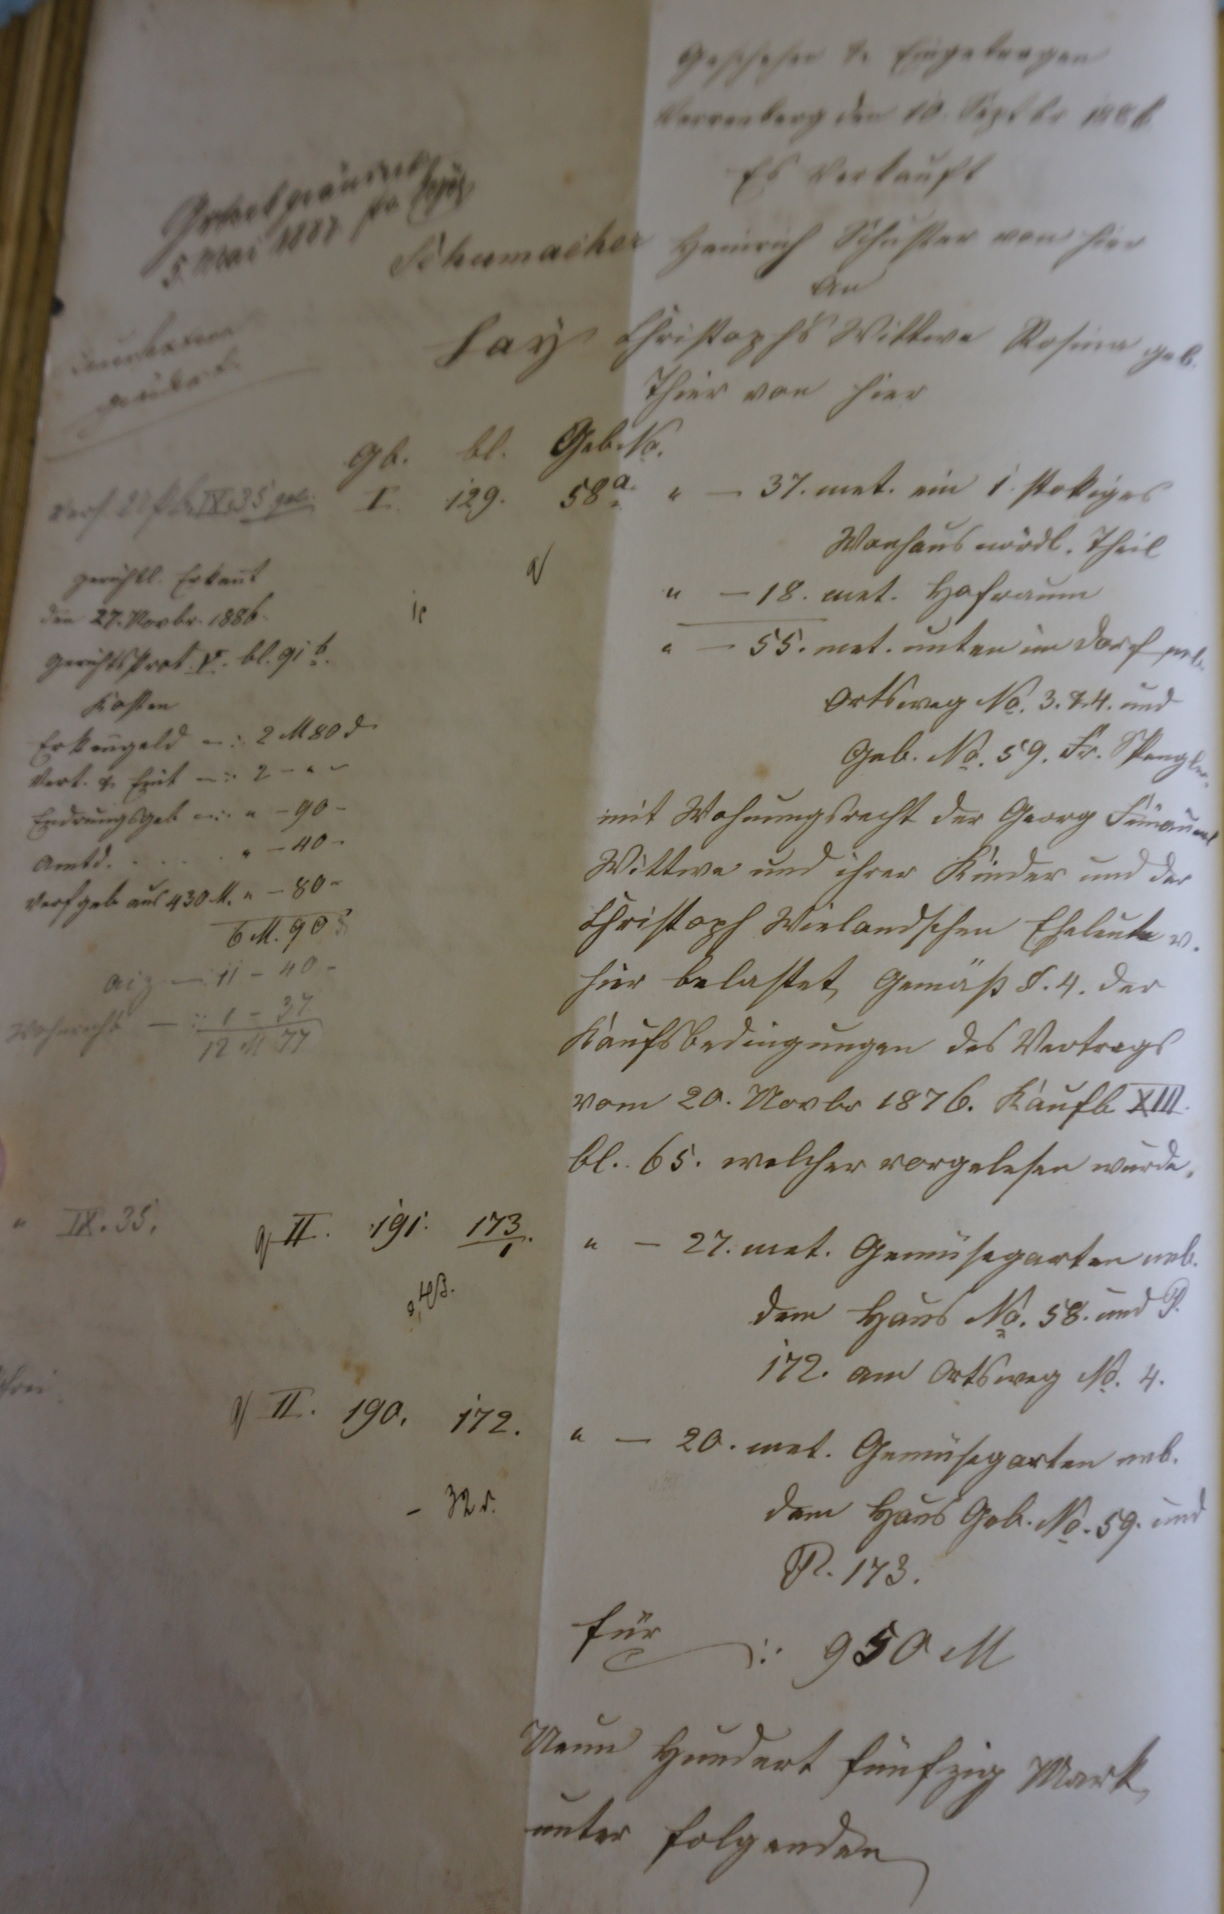 Geschehen & Eingetragen
Verrenberg den 10. Septbr 1886
Es Verkauft
Schumacher Heinrich Schuster von hier
An
Lay Christophs Wittwe Rosina geb.
Thier von hier
5. Mai 1887
Gb. bl. Geb. No.
IX. 35
I. 129. 58a. " — 37. met. ein 1. stokiges
Wonhaus nördl. Theil
" — 18. met. Hofraum
" — 55. met. unten im Dorf neb.
Ortsweg No. 3. & 4. und
Geb. No. 59. Fr. Spengler
gerichtl. Erkannt
den 27. Novbr. 1886.
Gerichtsprot. V. bl. 91 b.
Kosten
Erkenngeld —: 2 M 80 d
Vert. & Eint —: 2 — " —
Endrungsgeb —: " — 90 —
Amtd. . . . . . " — 40 —
aus 430 M. " — 80 —
6 M. 90
— 11 — 40 —
Wohnrecht —: 1 — 37
12 M 77
mit Wohnungsrecht der Georg
Wittwe und ihrer Kinder und der
Christoph Wielandschen Eheleute v.
hier belastet, Gemäß §. 4. der
Kaufsbedingungen des Vertrags
vom 20. Novbr 1876. Kaufb XIII.
bl. 65. welcher vorgelesen wurde.
" IX. 35.
II. 191. 173/1. " — 27. met. Gemüsegarten neb.
dem Haus No. 58. und P.
172. am Ortsweg No. 4.
II. 190. 172. " — 20. met. Gemüsegarten neb.
dem Haus Geb. No. 59. und
P. 173.
für : 950 M
Neun Hundert fünfzig Mark,
unter folgenden